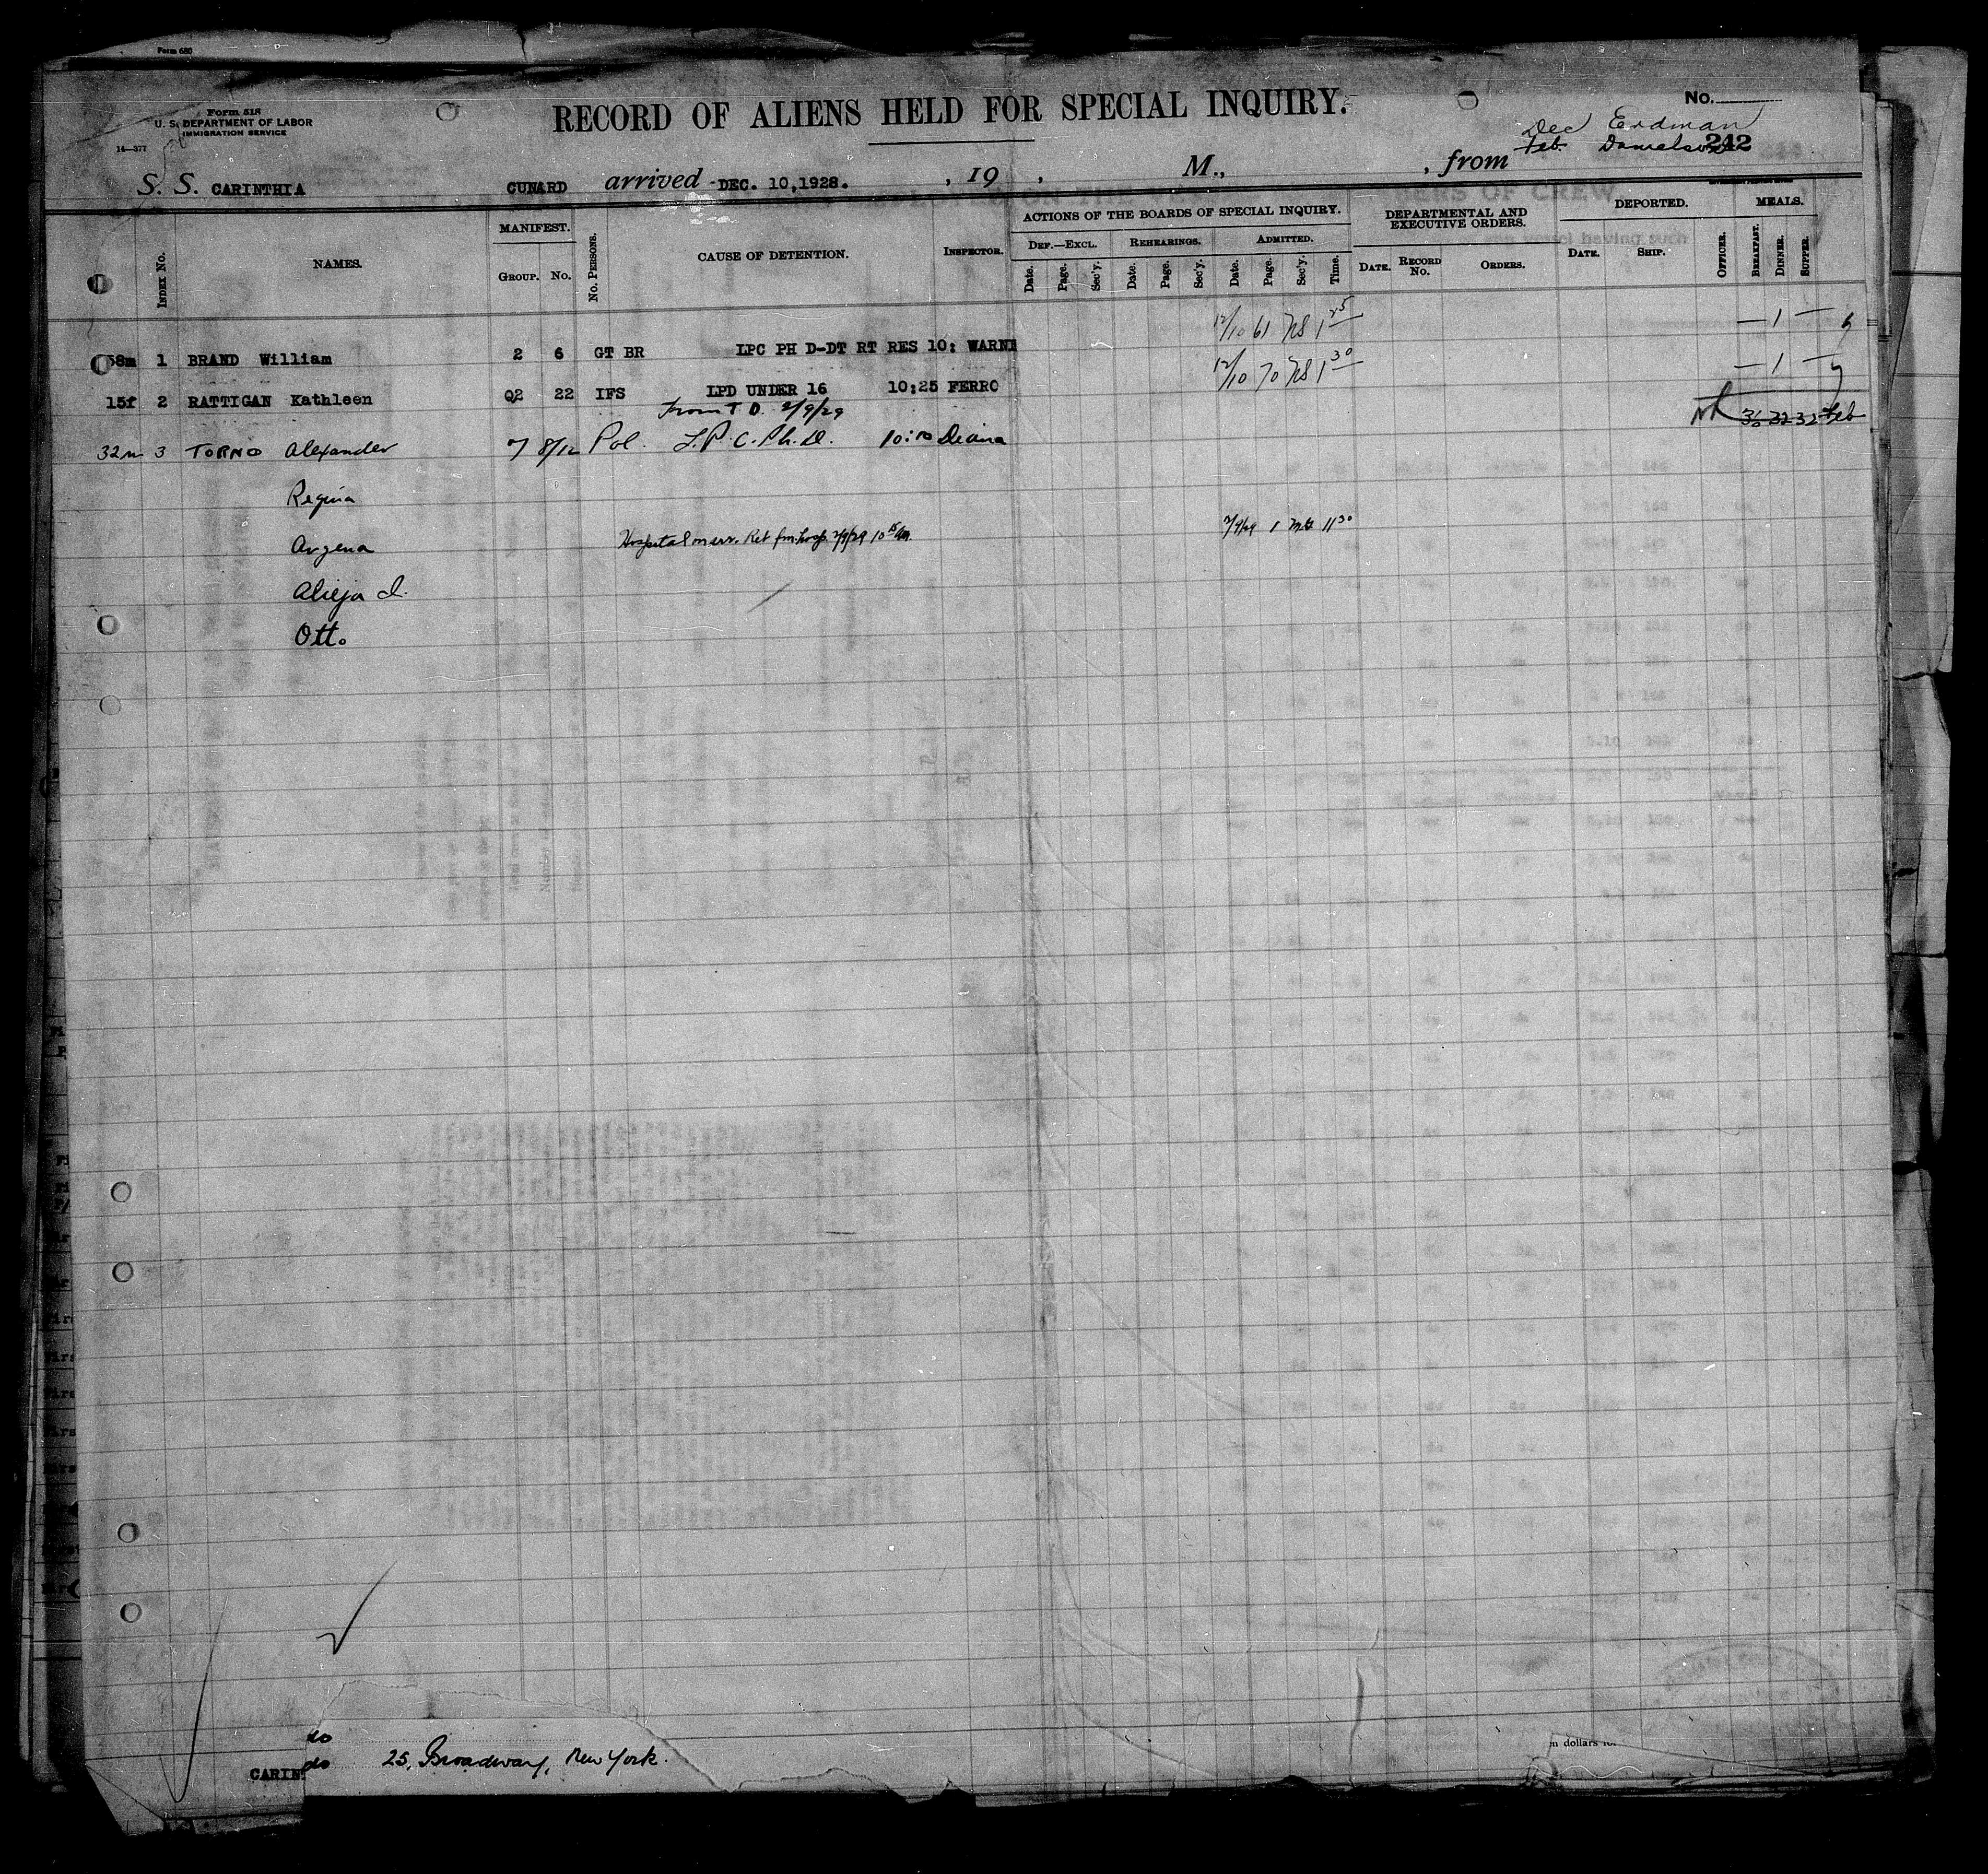 Form 680
Form 518
U. S. DEPARTMENT OF LABOR
IMMIGRATION SERVICE
14—377
RECORD OF ALIENS HELD FOR SPECIAL INQUIRY.
No.
Dec Erdman
Feb. Danielson 242
S. S. CARINTHIA CUNARD arrived DEC. 10,1928. , 19 , M., , from
NAMES. Index No. MANIFEST. Group. No. No. Persons. CAUSE OF DETENTION. Inspector.
ACTIONS OF THE BOARDS OF SPECIAL INQUIRY.
Def.—Excl. Rehearings. Admitted.
Date. Page. Sec'y. Date. Page. Sec'y. Date. Page. Sec'y. Time.
DEPARTMENTAL AND EXECUTIVE ORDERS.
Date. Record No. Orders.
DEPORTED.
Date. Ship. Officer.
MEALS.
Breakfast. Dinner. Supper.
58m 1 BRAND William 2 6 GT BR LPC PH D-DT RT RES 10: WARNE 12/10 61 1 25 — 1 —
15f 2 RATTIGAN Kathleen Q2 22 IFS LPD UNDER 16 10:25 FERRO 12/10 70 1 30 — 1 —
from T D. 2/9/29
32m 3 TORNO Alexander 7 8/12 Pol. L.P.C. Ph.D. 10:10 Deana 32 32 Feb
Regina
Avgena Hospital Ret fm hosp. 2/9/29 10 15 AM. 2/9/29 1 11 30
Alieja I.
Otto
do
do 25, Broadway, New York.
CARIN
n dollars for